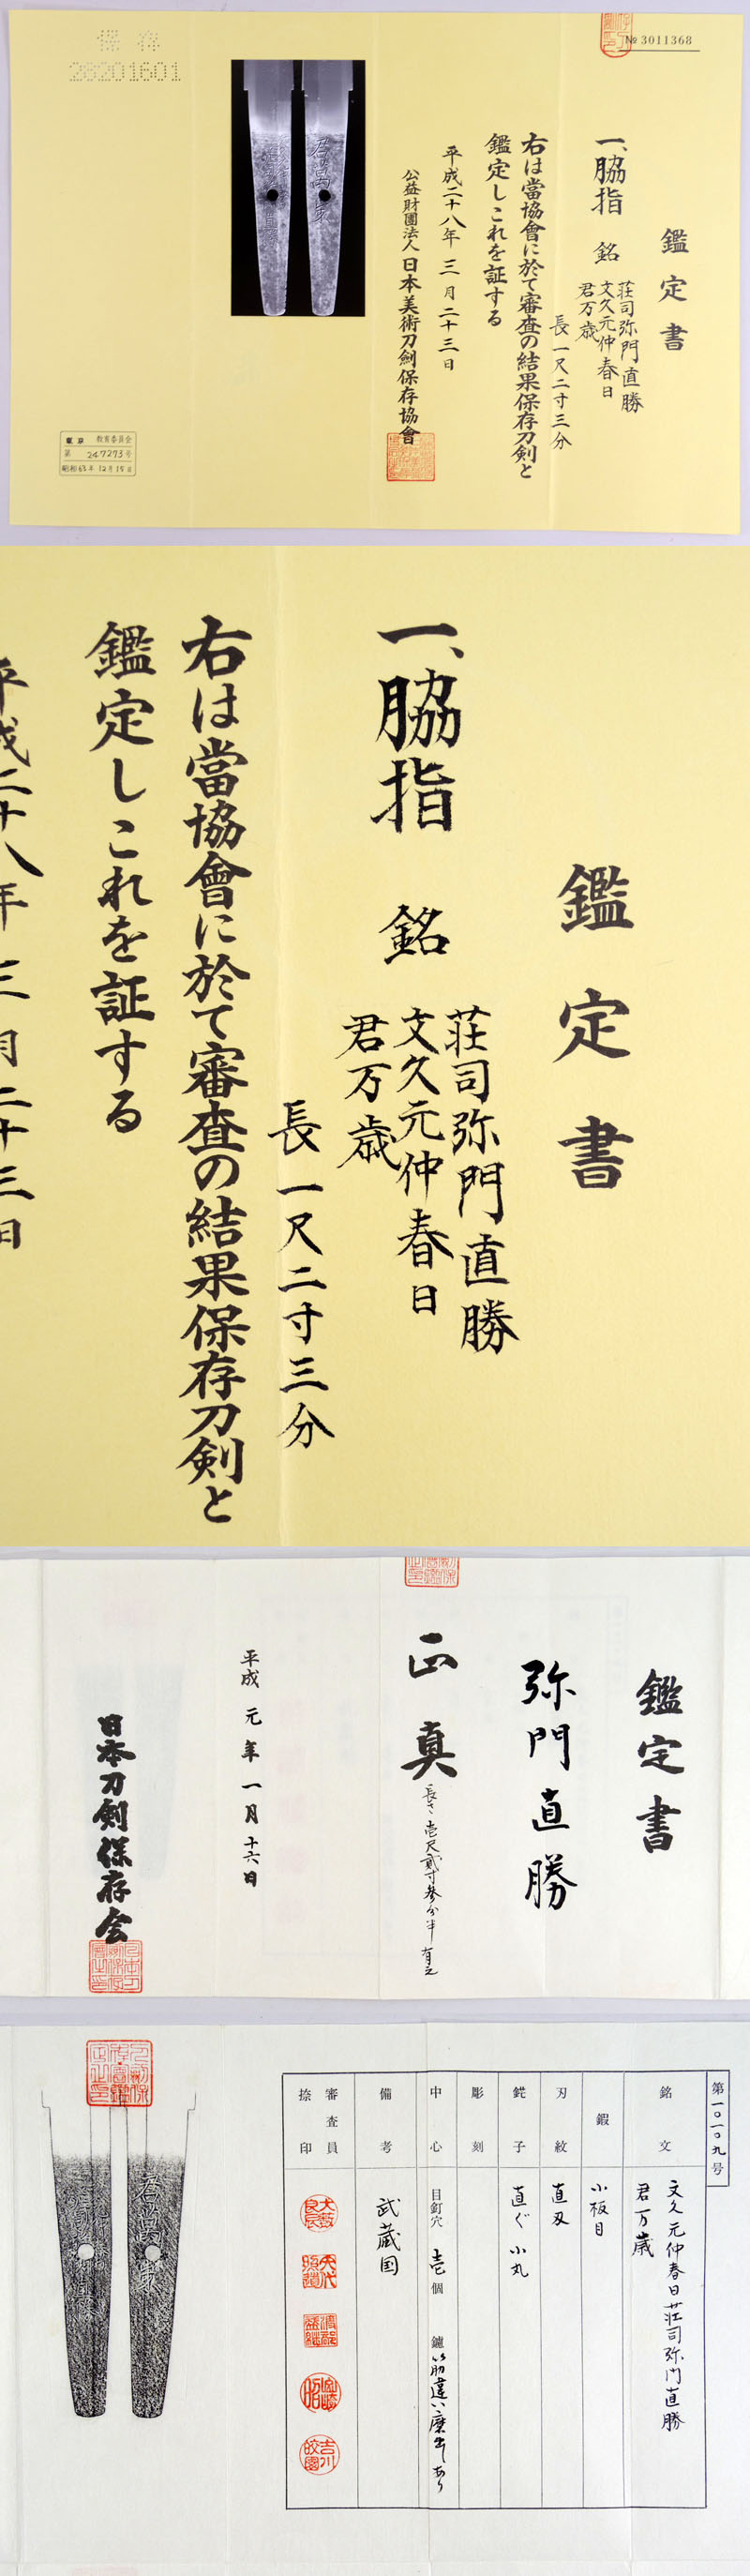 № 3011368
鑑定書
一、脇指 銘 荘司弥門直勝
文久元仲春日
君万歳
長一尺二寸三分
右は當協會に於て審査の結果保存刀剣と
鑑定しこれを証する
平成二十八年三月二十三日
公益財團法人日本美術刀剣保存協會
保存
28201601
東京 教育委員会
第 247273 号
昭和63年12月15日
鑑定書
一、脇指 銘 荘司弥門直勝
文久元仲春日
君万歳
長一尺二寸三分
右は當協會に於て審査の結果保存刀剣と
鑑定しこれを証する
平成二十八年三月二十三日
鑑定書
弥門直勝
正真 長さ壱尺貳寸参分半有之
平成元年一月十六日
日本刀剣保存会
第一〇一〇九号
銘文 文久元仲春日荘司弥門直勝
君万歳
鍜 小板目
刃紋 直刃
鋩子 直ぐ小丸
彫刻
中心 目釘穴 壱個 鑢 筋違い 磨出しあり
備考 武蔵国
審査員
捺印